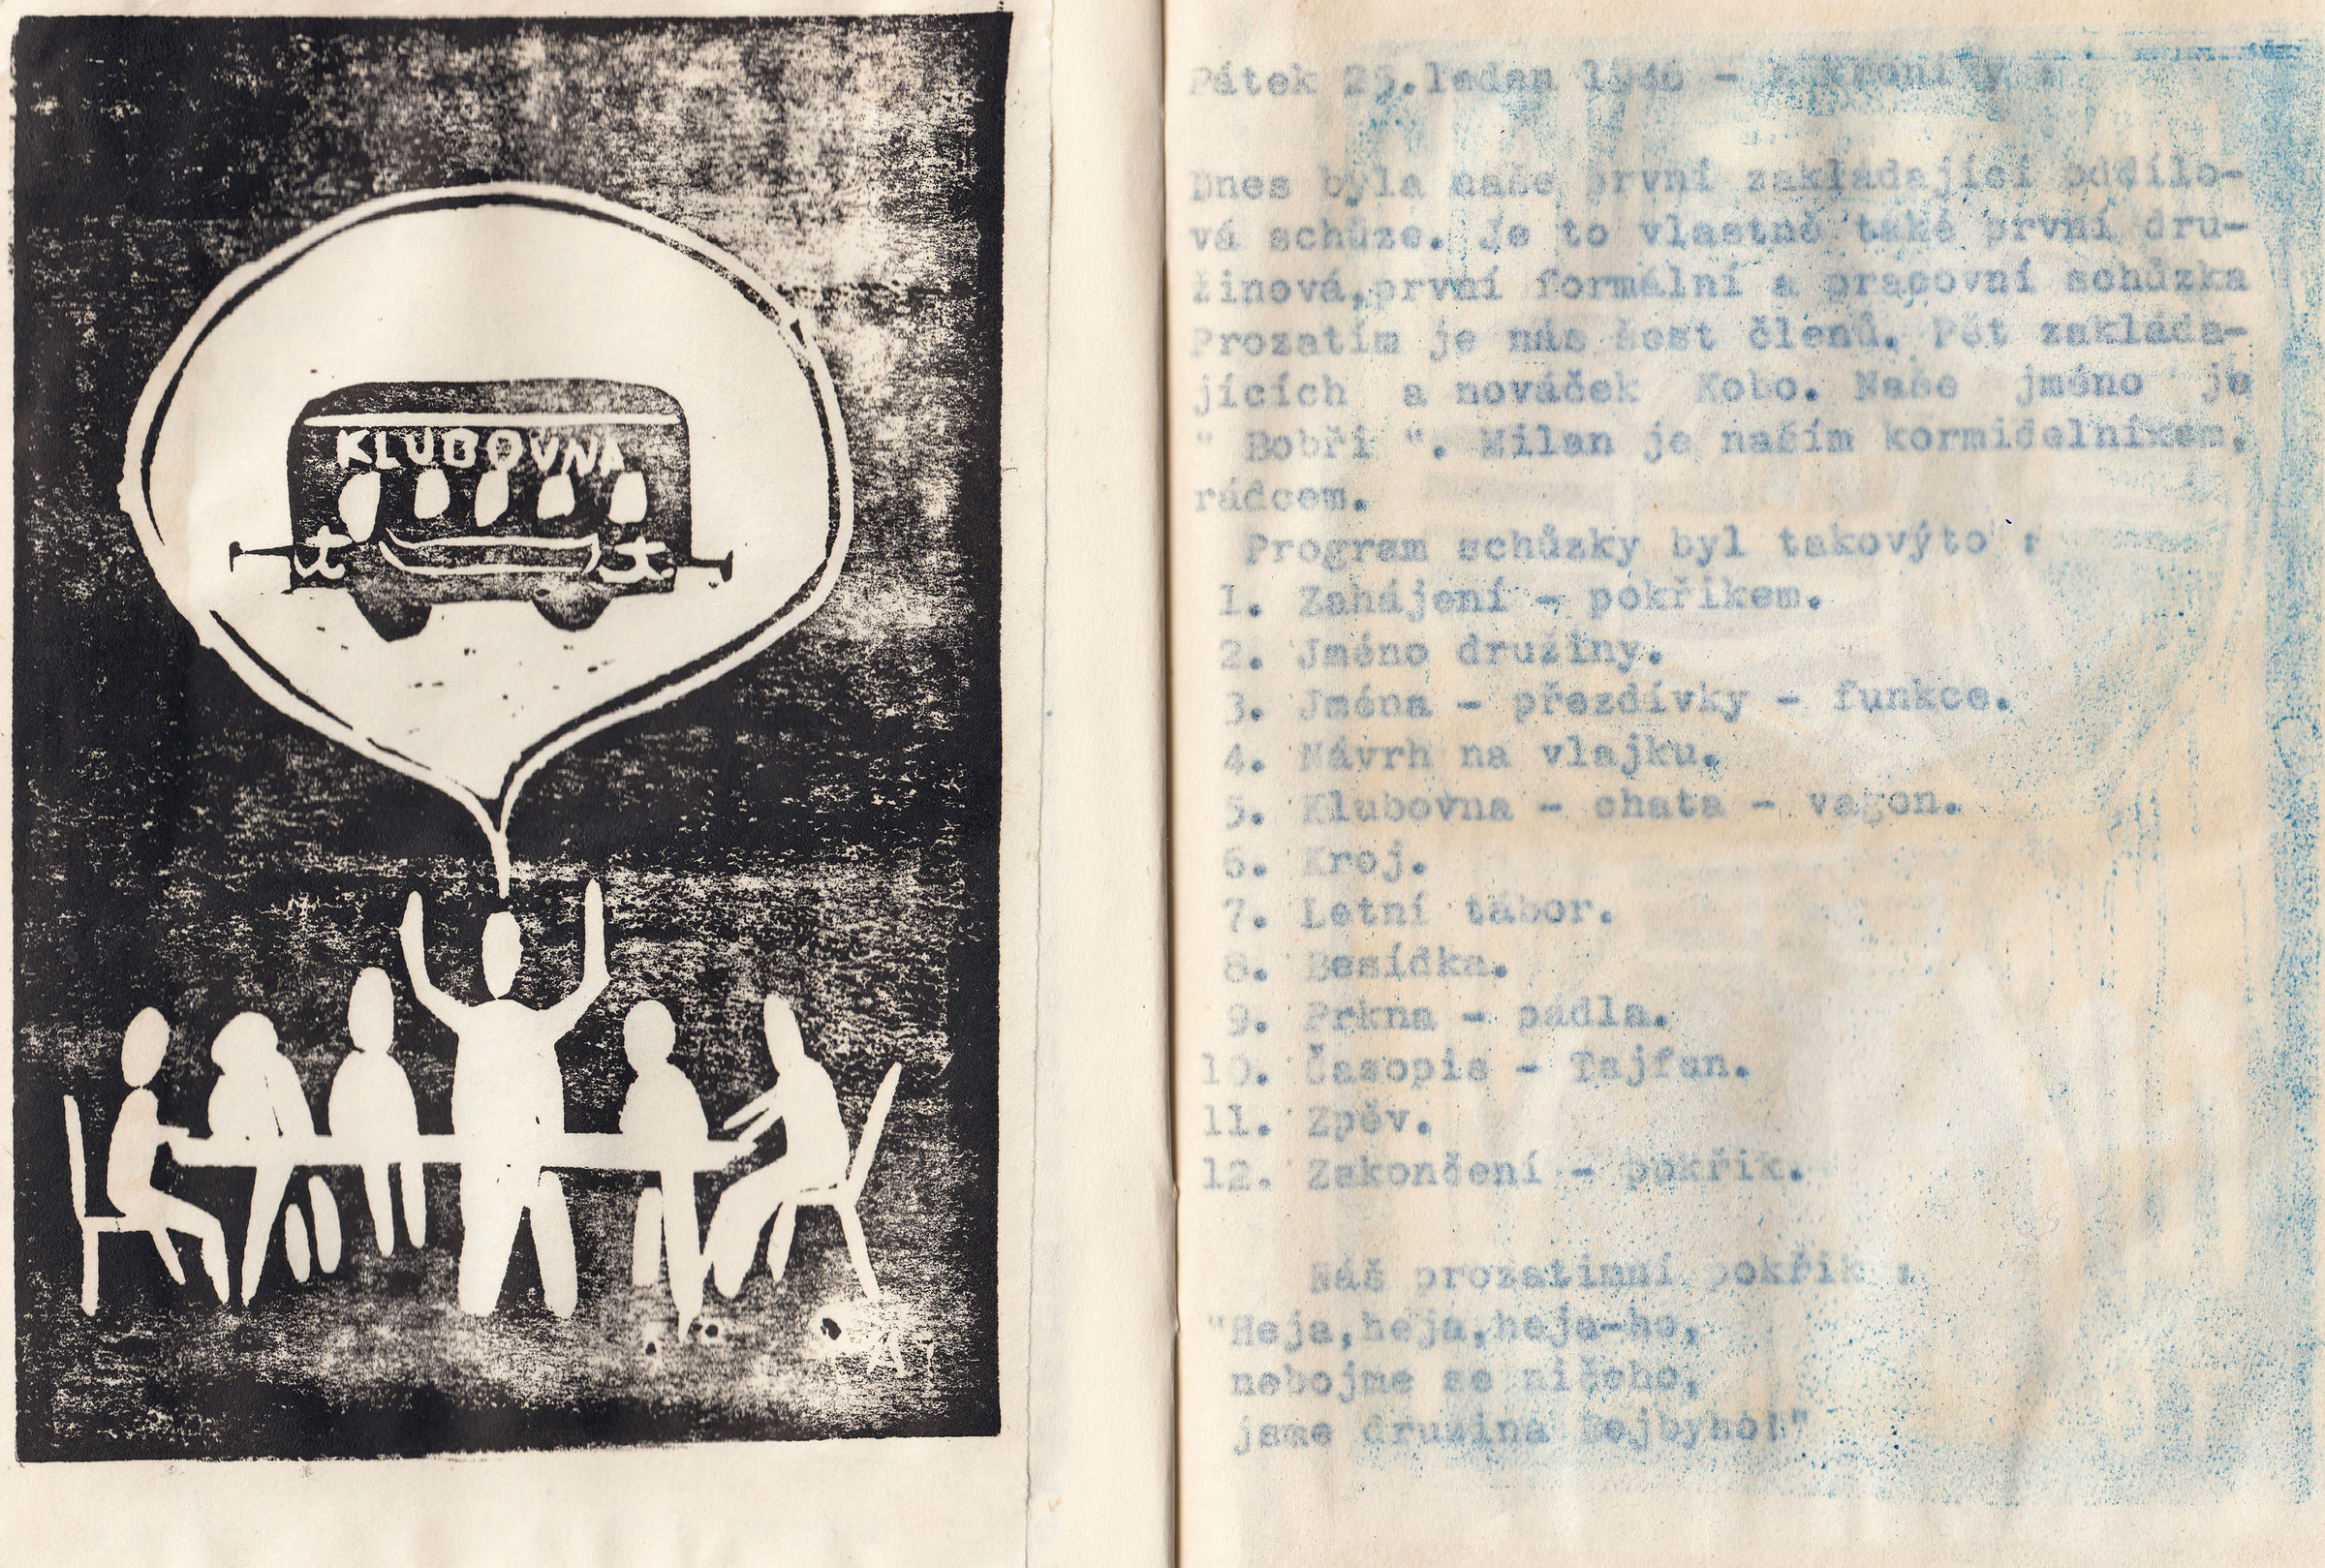 KLUBOVNA
Pátek 25.leden 1946 -
Dnes byla naše první zakládající oddílo-
vá schůze. Je to vlastně také první dru-
žinová,první formální a pracovní schůzka
Prozatím je nás šest členů. Pět zakláda-
jících a nováček Kobo. Naše jméno je
" Bobři ". Milan je naším kormidelníkem,
rádcem.
Program schůzky byl takovýto :
1. Zahájení - pokřikem.
2. Jméno družiny.
3. Jména - přezdívky - funkce.
4. Návrh na vlajku.
5. Klubovna - chata - vagon.
6. Kroj.
7. Letní tábor.
8. Besídka.
9. Prkna - pádla.
10. Časopis - Tajfun.
11. Zpěv.
12. Zakončení - pokřik.
Náš prozatimní pokřik :
"Heja,heja,heja-ho,
nebojme se ničeho,
jsme družina Bejbyho!"